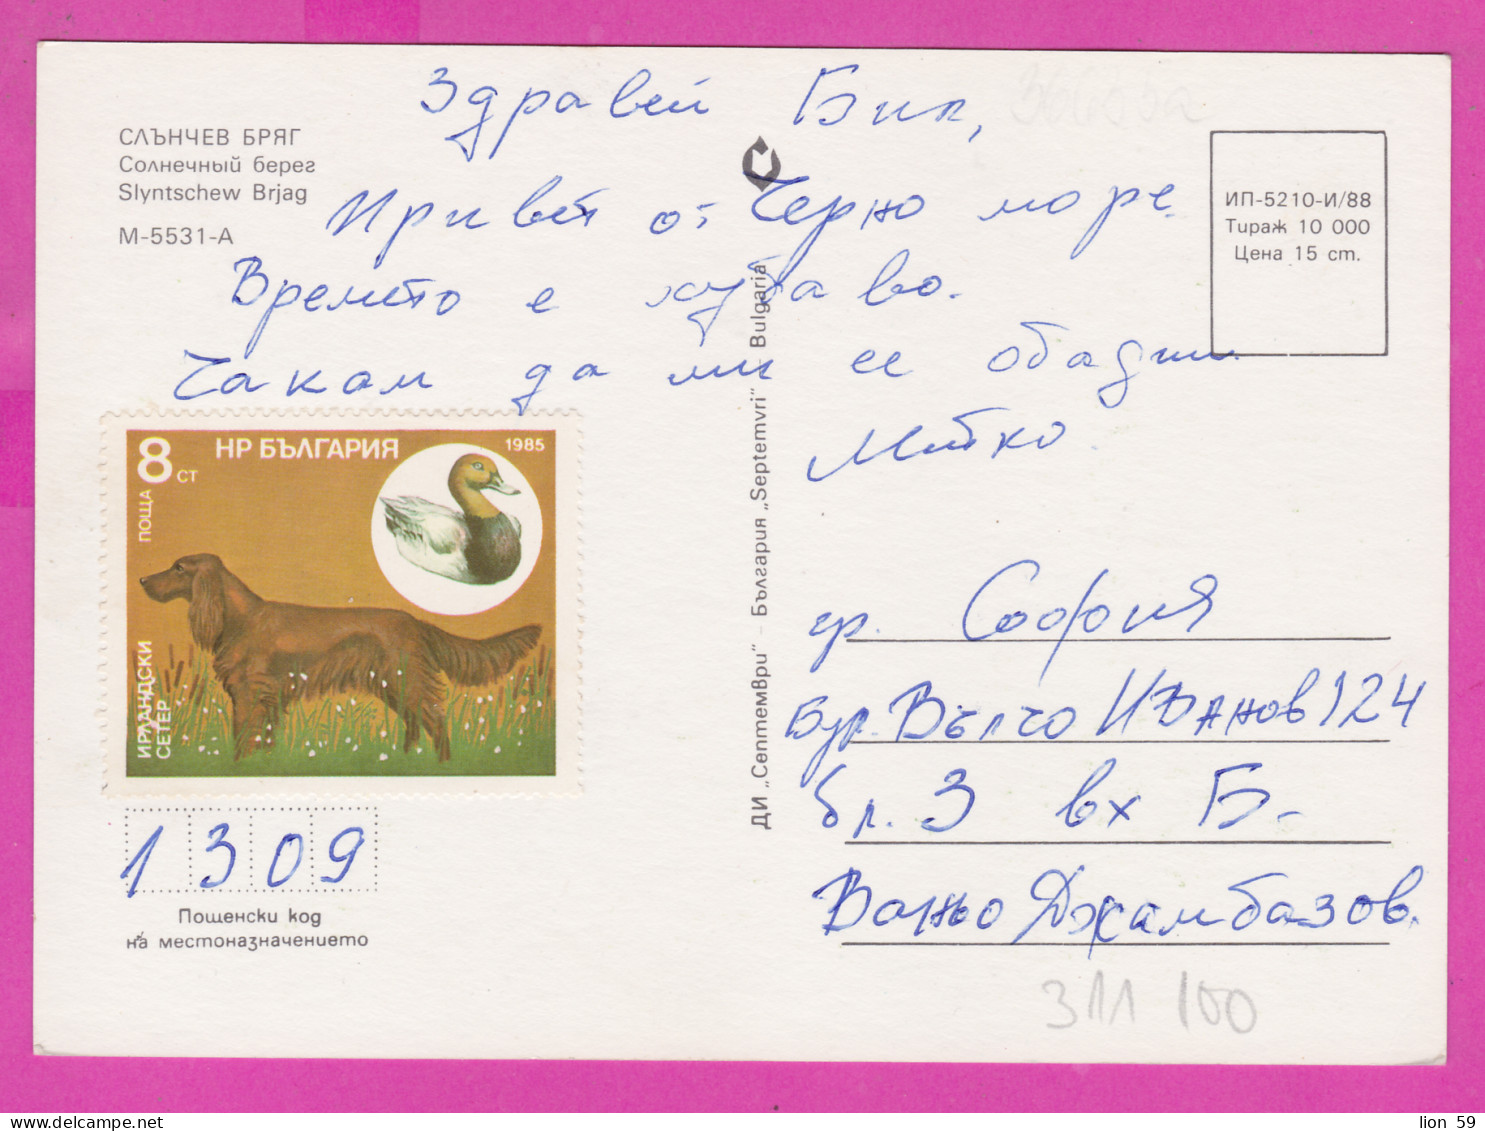 Здравей Бил,
СЛЪНЧЕВ БРЯГ
Солнечный берег
Slyntschew Brjag
М-5531-А
Привет от Черно море.
Времето е хубаво.
Чакам да ми се обадиш
Митко.
ИП-5210-И/88
Тираж 10 000
Цена 15 ст.
8 СТ
НР БЪЛГАРИЯ
1985
ПОЩА
ИРЛАНДСКИ
СЕТЕР
ДИ „Септември" – България „Septemvri" – Bulgaria
гр. София
Бул. Вълчо Иванов 124
бл. 3 вх Б-
Ваньо Джамбазов.
1309
Пощенски код
на местоназначението
311 100
lion 59